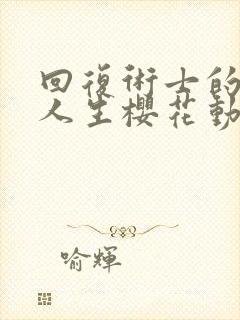 回復術士的
人生櫻花動
喻輝